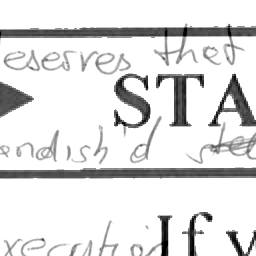 eserves that
STA
endish'd stee
xecution
If y